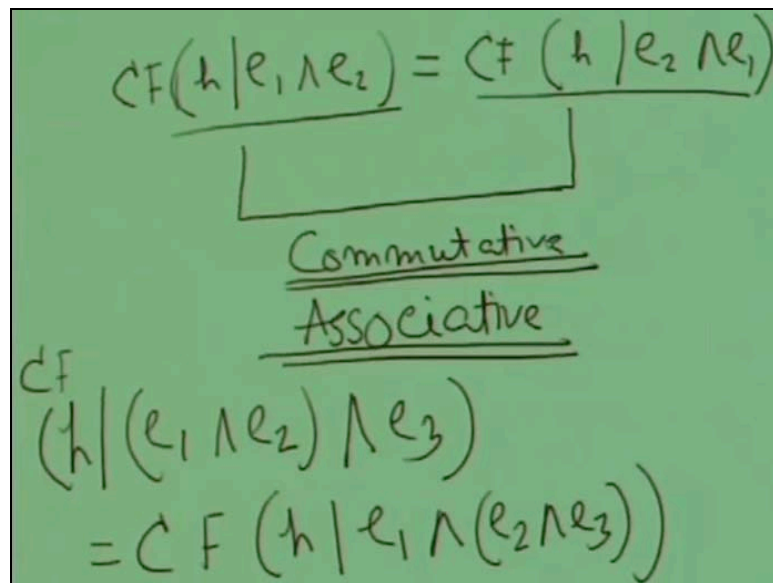 CF(h|e₁∧e₂) = CF(h|e₂∧e₁)
Commutative
Associative
CF
(h|(e₁∧e₂)∧e₃)
= CF(h|e₁∧(e₂∧e₃))